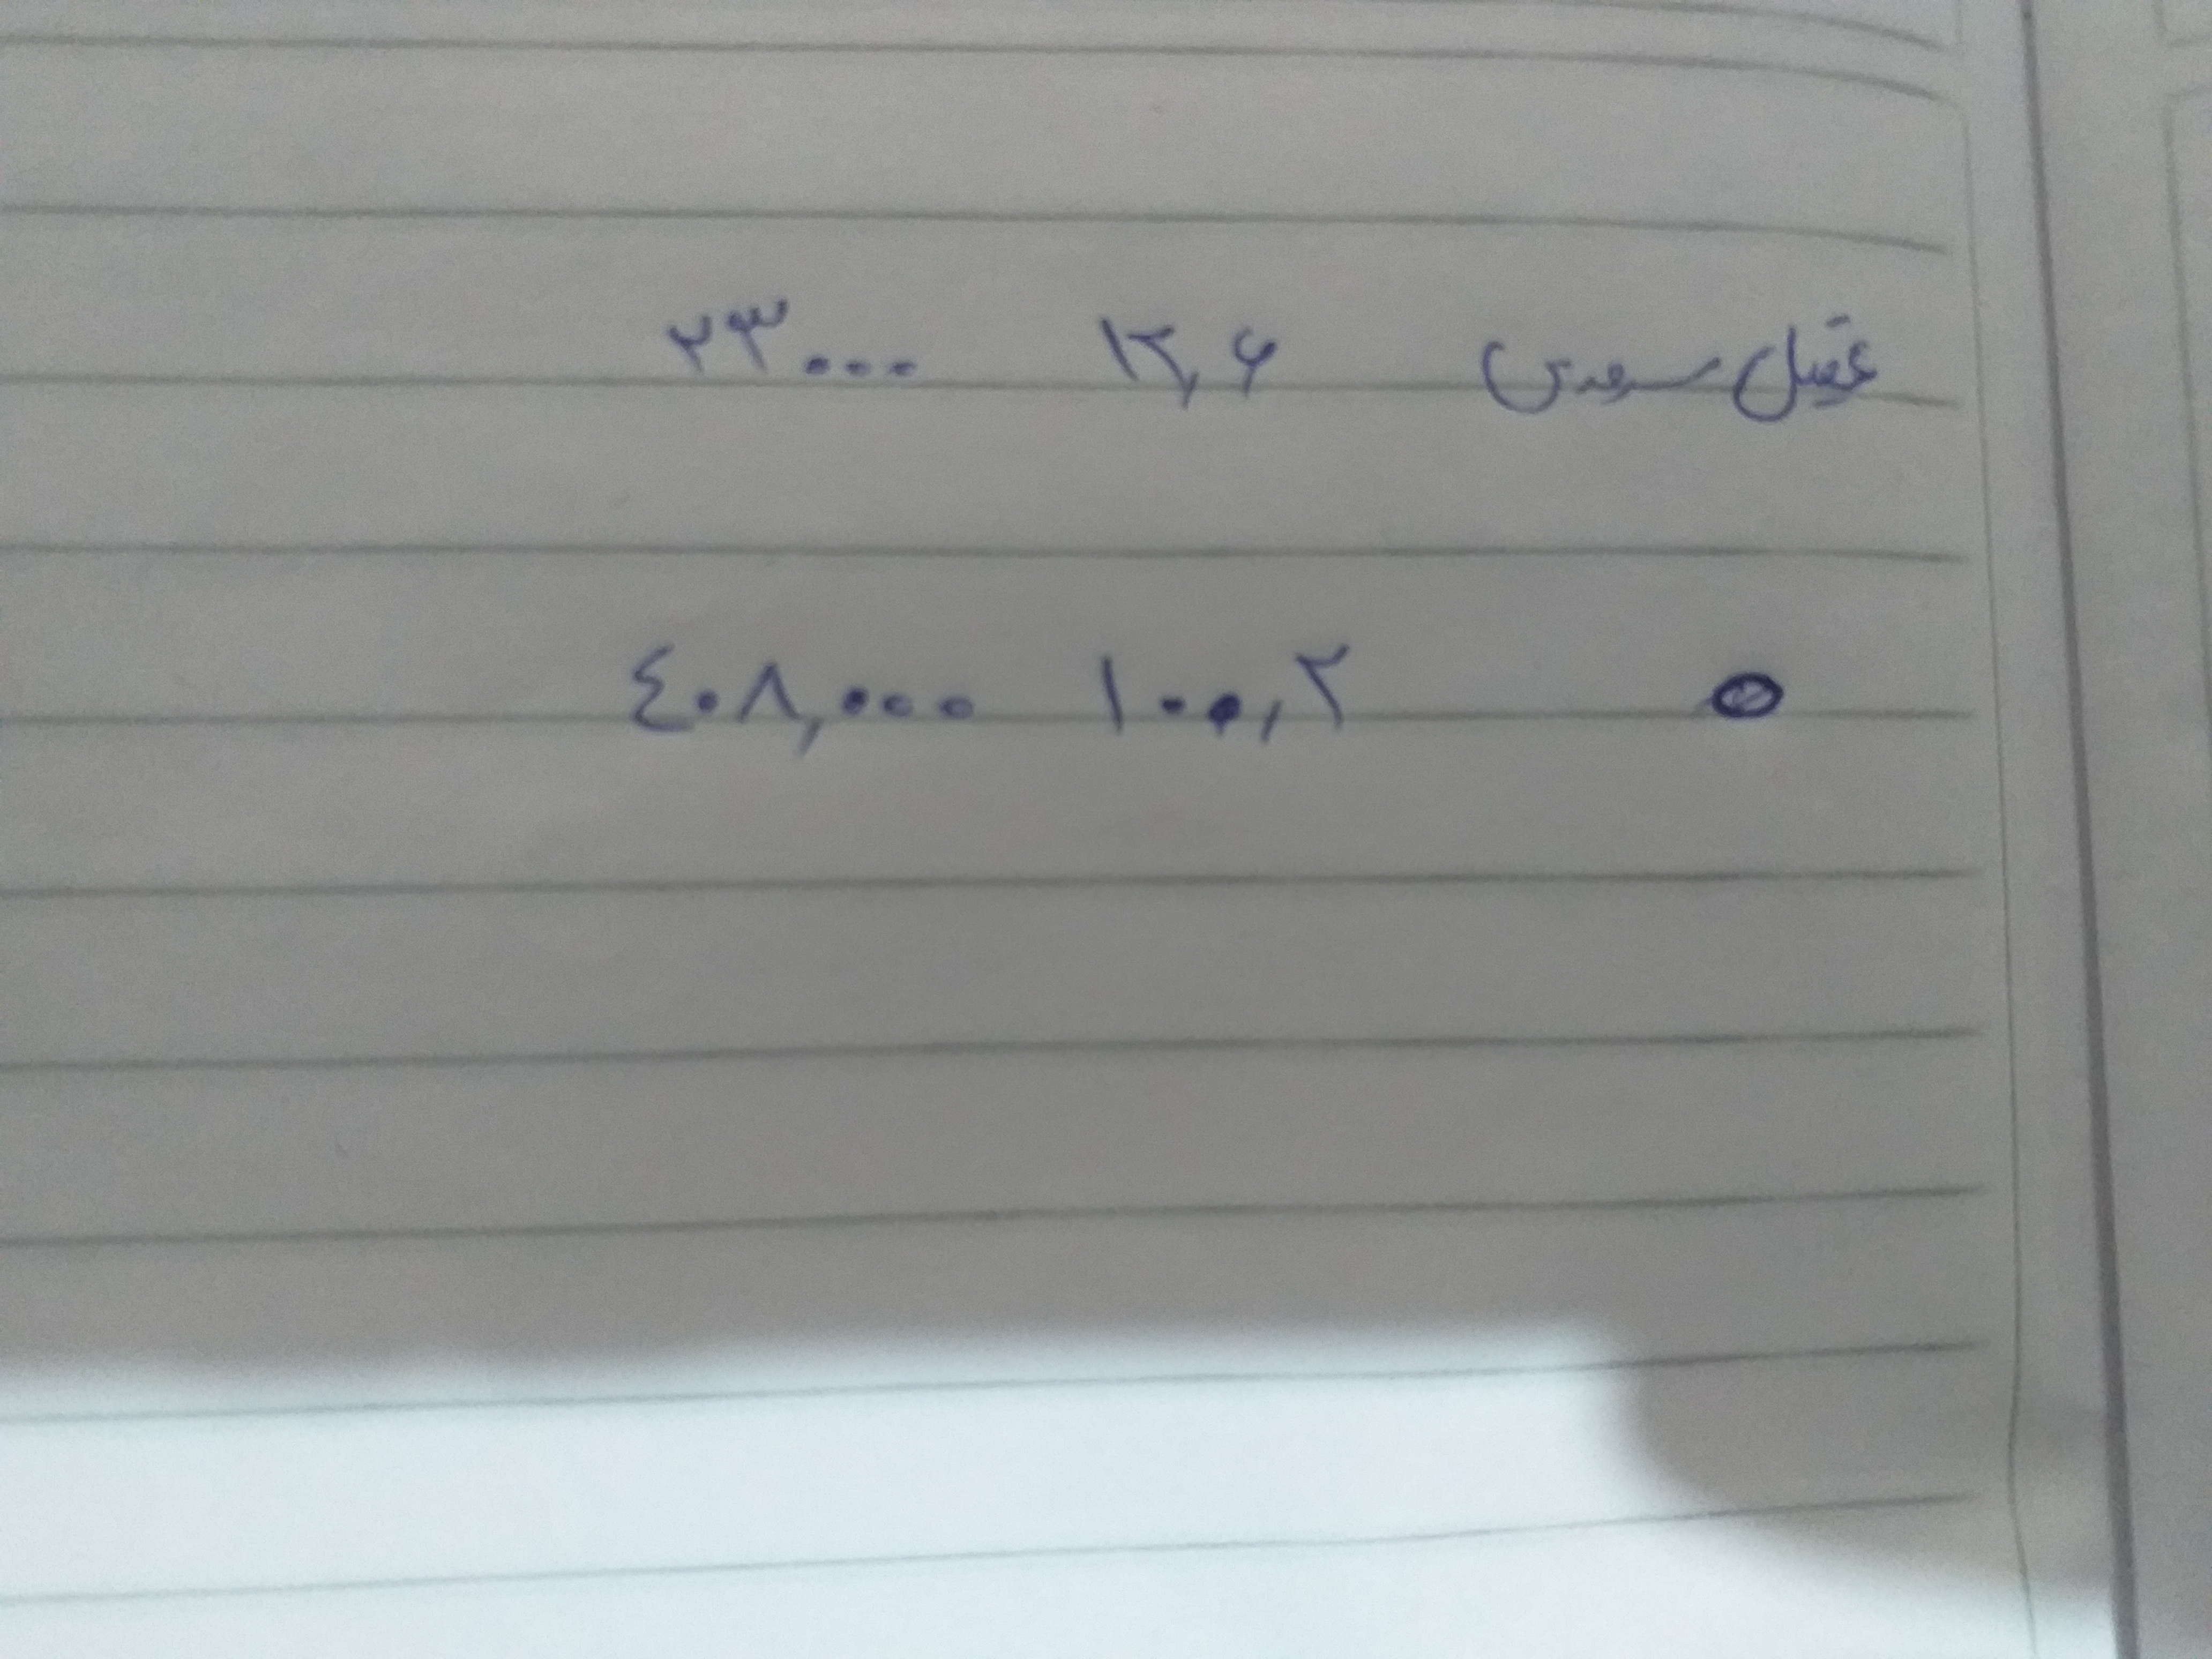 عقیل سرمدی ۱۲,۶ ۲۳۰۰۰
۱۰۰,۲ ٤۰۸,۰۰۰